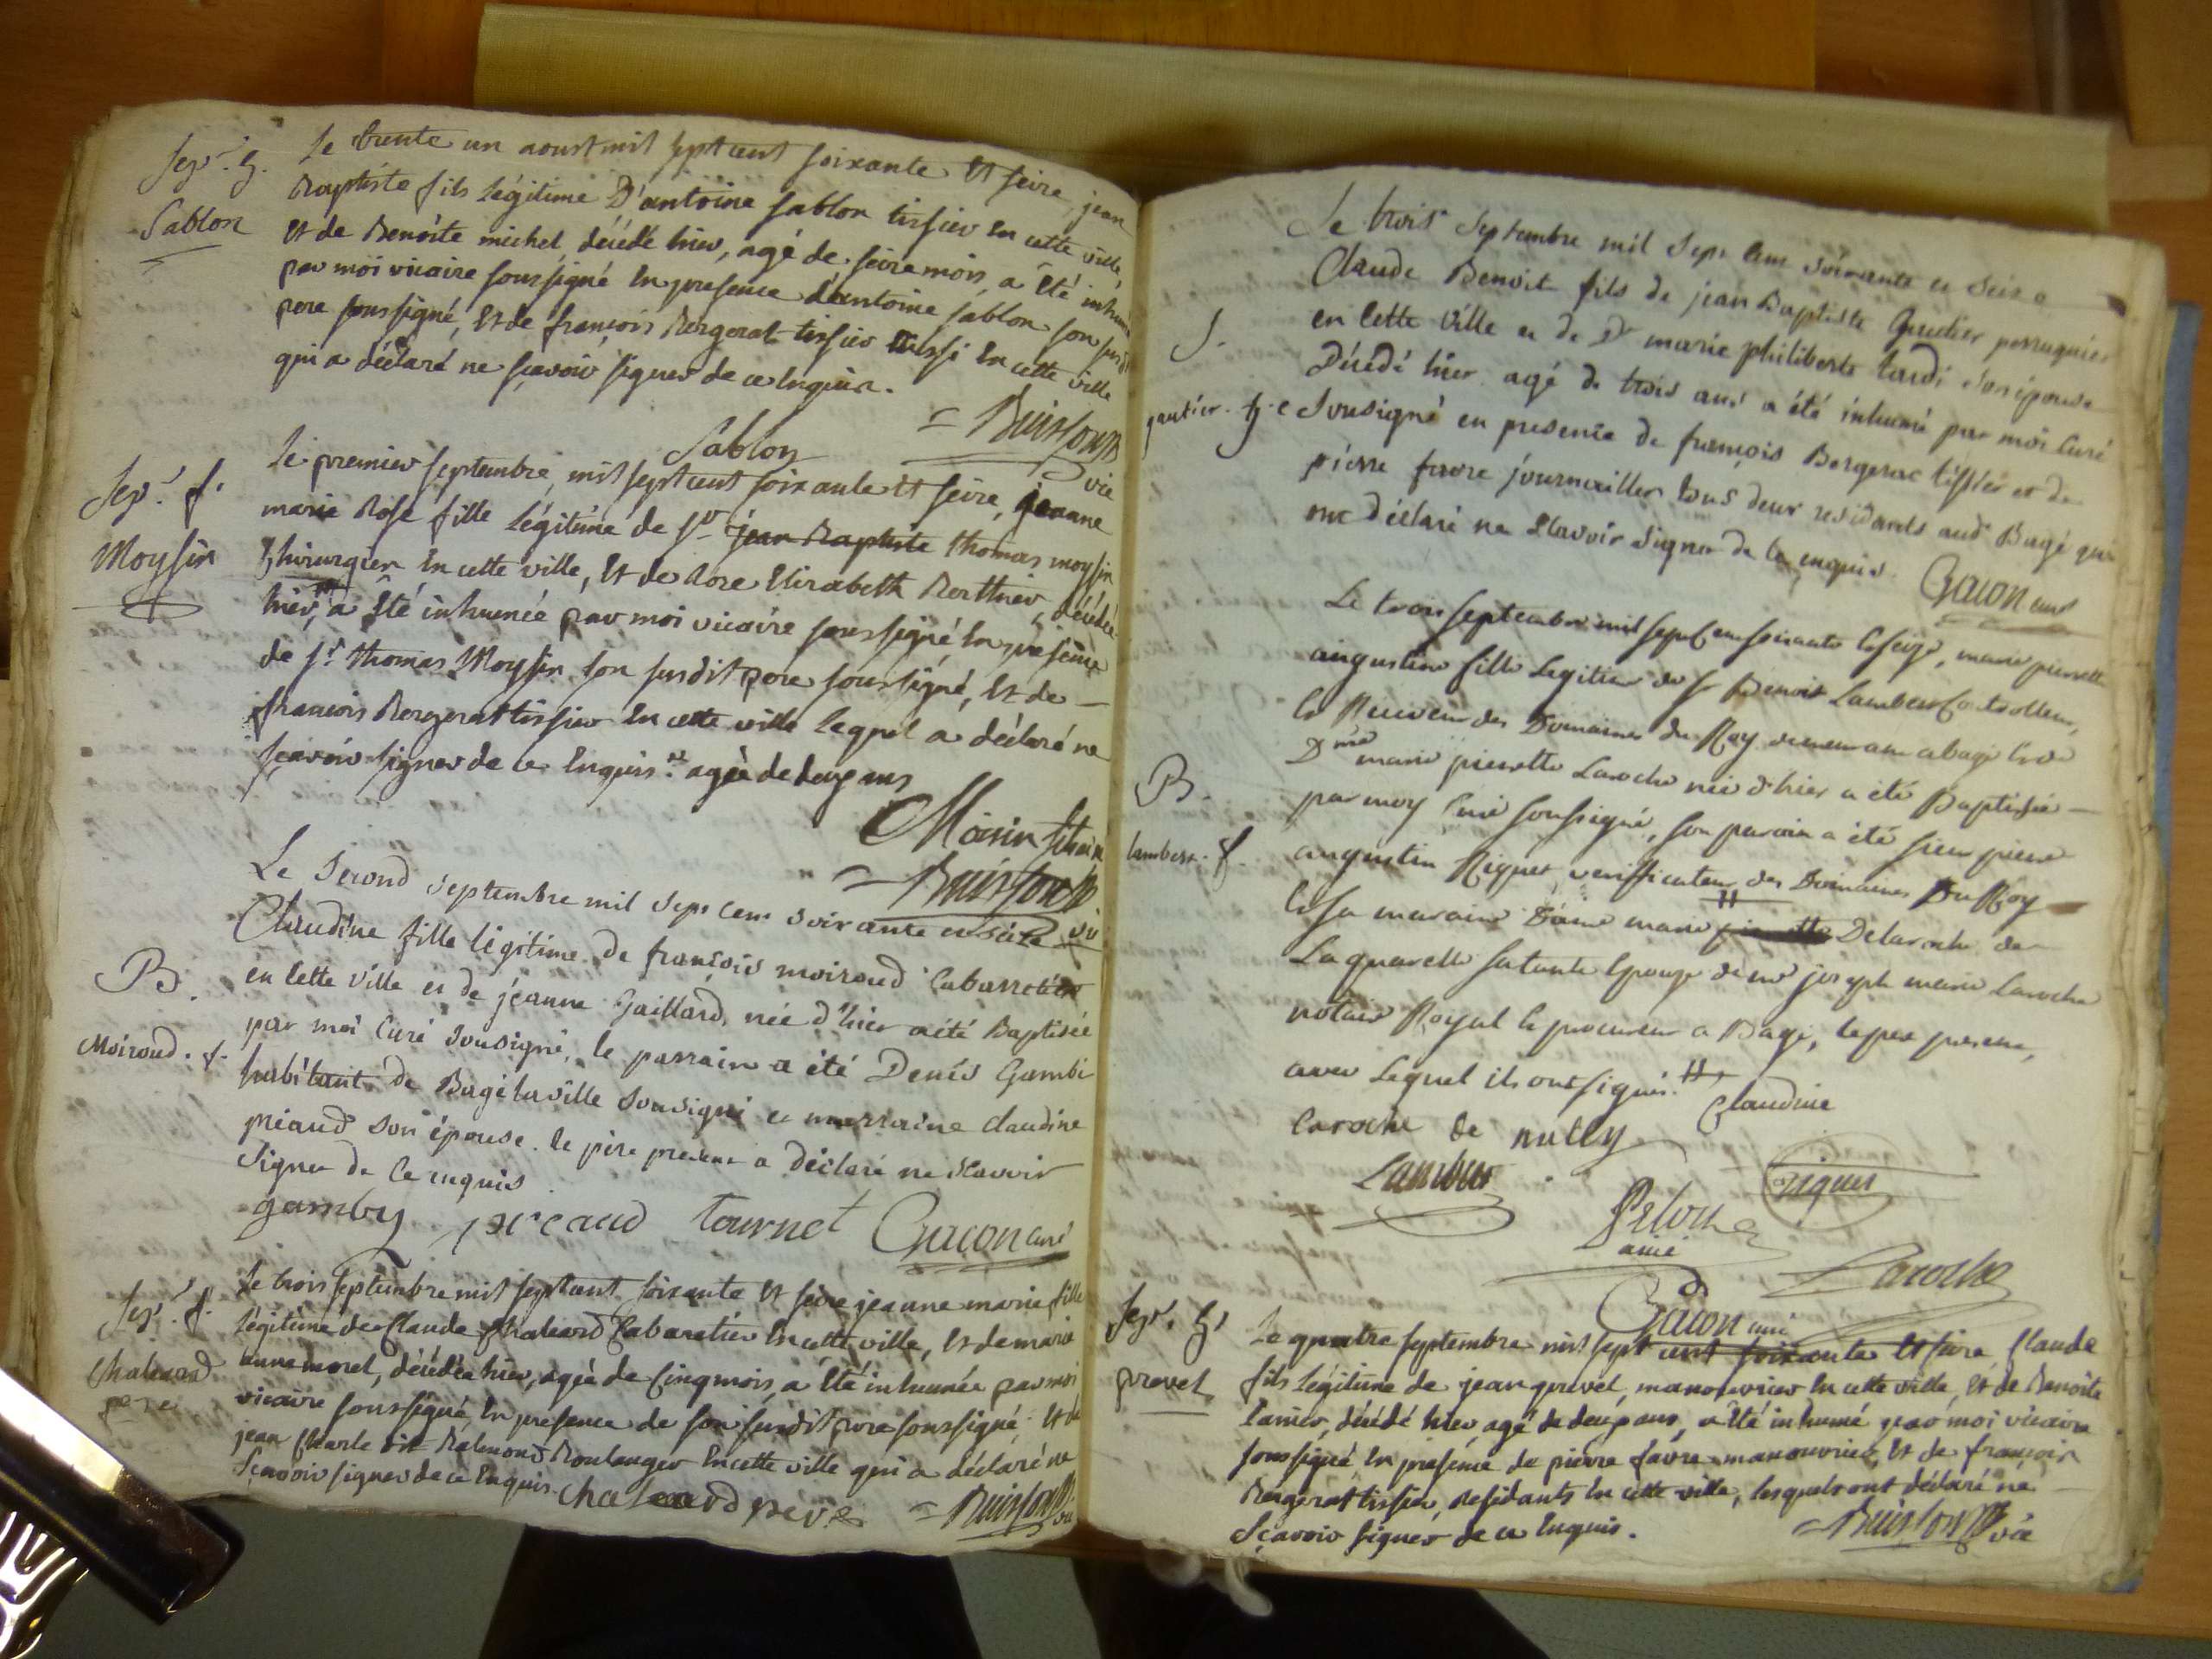 Sep.r g.
Sablon
Le trente un aoust mil sept cent soixante et seize, jean
Baptiste fils légitime D'antoine Sablon tissier en cette ville,
et de Benoîte michel, décédé hier, agé de seize mois, a été inhumé
par moi vicaire soussigné en presence d'antoine Sablon son susdit
pere soussigné, et de françois Bergerat tissier aussi en cette ville
qui a déclaré ne sçavoir signer de ce Enquis.
Sablon
Buisson
vic
Sep.r f.
Moysin
Le premier septembre, mil sept cent soixante et seize, jeanne
marie Rose fille légitime de S.r jean Baptiste thomas moysin
Chirurgien en cette ville, et de Rose Elizabeth Berthier, décédée
hier, a été inhumée par moi vicaire soussigné, en presence
de S.r thomas Moysin son susdit pere soussigné, et de
françois Bergerat tissier en cette ville lequel a déclaré ne
sçavoir signer de ce Enquis. agée de deux ans
Moisin
Buisson
vic
B.
Moiroud. f.
Le Second septembre mil sept cent soixante et seize
Claudine fille légitime de françois moiroud Cabarretier
en cette ville et de jeanne Gaillard, née d'hier a été Baptisée
par moi Curé Sousigné, le parrain a été Denis Gambi
habitant de Bagé la ville Sousigné et marraine claudine
preaud son épouse. le pere present a déclaré ne sçavoir
signer de ce enquis
gamby preaud tournet Gacon curé
Sep.r f.
Chaleard
pere
Le trois septembre mil sept cent soixante et seize jeanne marie fille
légitime de Claude Chaleard Cabaretier en cette ville, et de marie
anne morel, décédée hier, agée de cinq mois, a été inhumée par moi
vicaire soussigné en presence de son susdit pere soussigné, et de
jean Charle dit Balmond Boulanger en cette ville qui a déclaré ne
sçavoir signer de ce Enquis. chaleard pere Buisson vic
S.
gautier. g.
Le trois Septembre mil Sept cent soixante et seize
Claude Benoit fils de jean Baptiste Gautier perruquier
en cette Ville et de D.e marie philiberte tardi son épouse
Décédé hier agé de trois ans a été inhumé par moi Curé
Sousigné en presence de françois Bergerat tissier et de
pierre favre journaillier tous deux residants aud. Bagé qui
ont déclaré ne sçavoir signer de ce enquis.
Gacon curé
B.
lambert. f.
Le trois septembre mil sept cent soixante et seize, marie pierrette
augustine fille Legitime de Sr Benoit Lambert Controlleur,
et Receveur des Domaines du Roy demeurant a bagé et de
Dme marie pierrette Laroche née d'hier a été Baptisée
par moy Curé soussigné, son parain a été sieur pierre
augustin Riquet, verifficateur des Domaines Du Roy
et sa maraine Dame marie Delaroche de
La quarelle sa tante Epouse de mr joseph marie Laroche
notaire Royal et procureur a Bagé, le pere present,
avec Lequel ils ont signés. Claudine
Laroche de nully
Lambert
Riquet
Laroche
Gacon curé
Sep.r g.
prevel
Le quatre septembre mil sept cent soixante et seize, Claude
fils légitime de jean prevel, manouvrier en cette ville, et de Benoîte
Tanier, décédé hier, agé de deux ans, a été inhumé par moi vicaire
soussigné en presence de pierre favre manouvrier, et de françois
Bergerat tissier, residants en cette ville, lesquels ont déclaré ne
sçavoir signer de ce Enquis.
Buisson vic